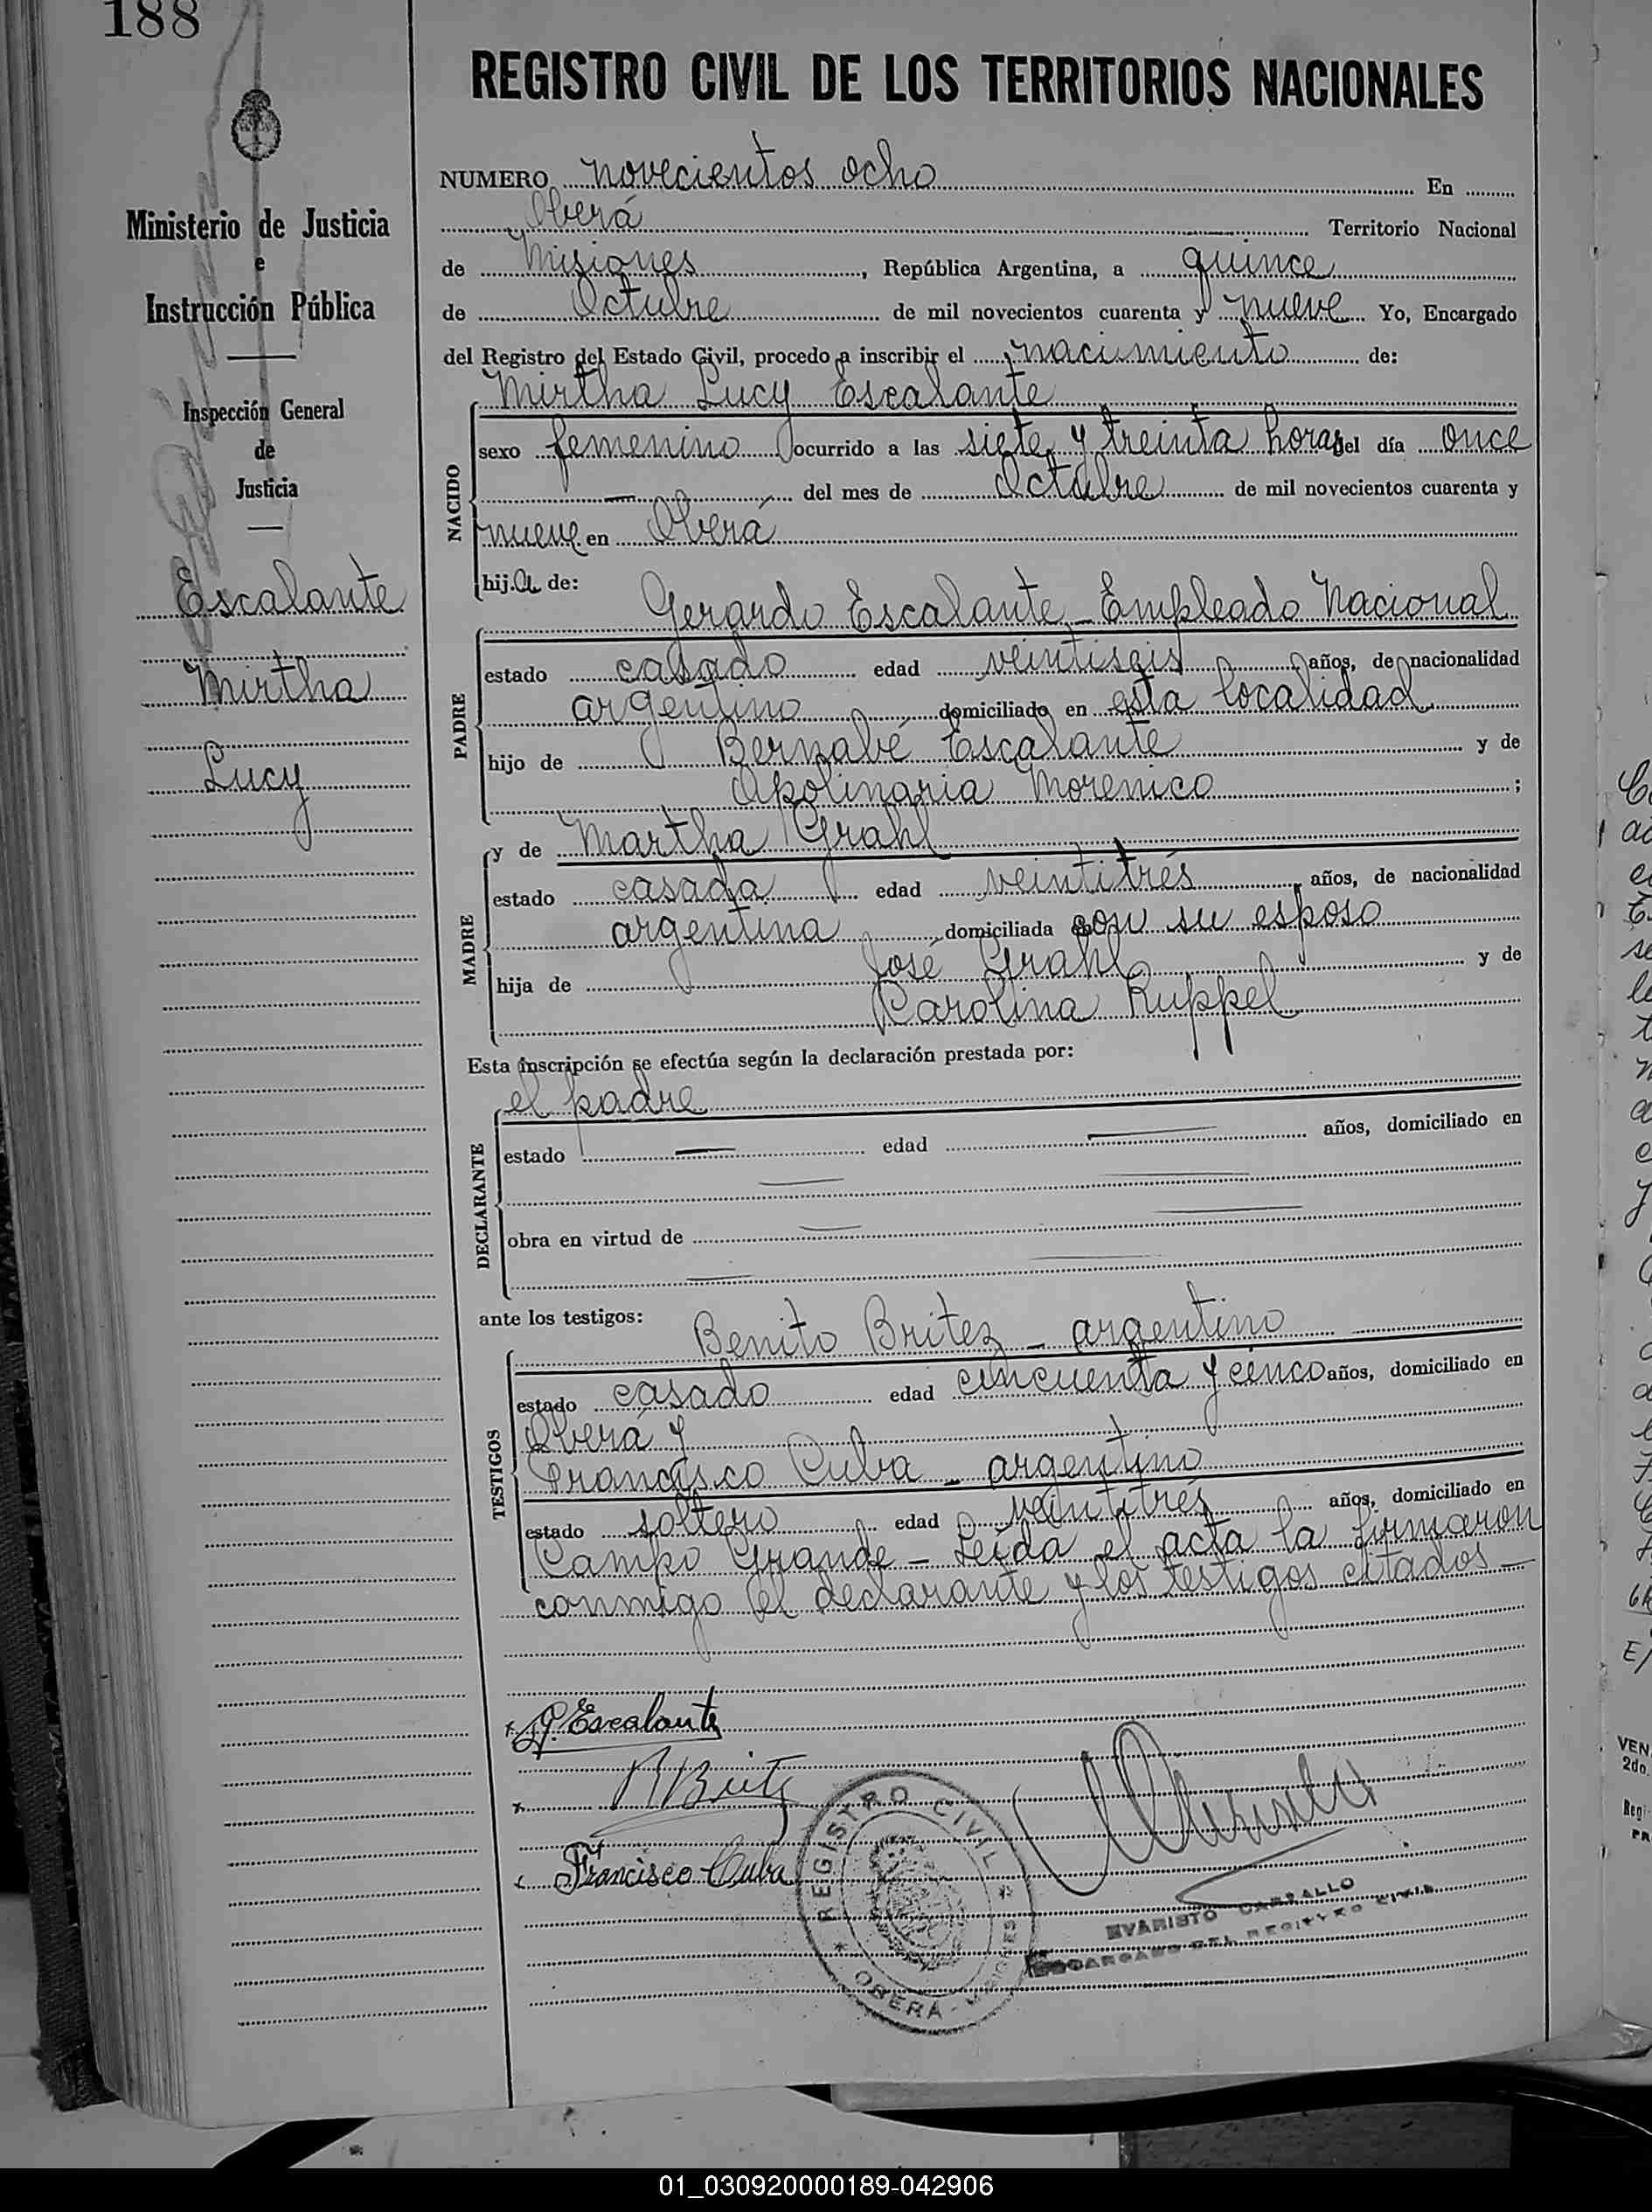 188
REGISTRO CIVIL DE LOS TERRITORIOS NACIONALES
Ministerio de Justicia
e
Instrucción Pública
Inspección General
de
Justicia
Escalante
Mirtha
Lucy
NUMERO novecientos ocho En
Oberá Territorio Nacional
de Misiones, República Argentina, a quince
de Octubre de mil novecientos cuarenta y nueve Yo, Encargado
del Registro del Estado Civil, procedo a inscribir el nacimiento de:
NACIDO
Mirtha Lucy Escalante
sexo femenino ocurrido a las siete y treinta horas del día once
del mes de Octubre de mil novecientos cuarenta y
nueve en Oberá
hija de:
PADRE
Gerardo Escalante - Empleado Nacional
estado casado edad veintiseis años, de nacionalidad
argentino domiciliado en esta localidad
hijo de Bernabé Escalante y de
Apolinaria Morenico ;
MADRE
y de Martha Grahl
estado casada edad veintitrés años, de nacionalidad
argentina domiciliada con su esposo
hija de José Grahl y de
Carolina Ruppel
Esta inscripción se efectúa según la declaración prestada por:
DECLARANTE
el padre
estado — edad — años, domiciliado en
obra en virtud de
ante los testigos:
TESTIGOS
Benito Britez - argentino
estado casado edad cincuenta y cinco años, domiciliado en
Oberá y
Francisco Cuba - argentino
estado soltero edad veintitrés años, domiciliado en
Campo Grande - Leída el acta la firmaron
conmigo el declarante y los testigos citados -
G. Escalante
B Britz
Francisco Cuba
REGISTRO CIVIL
OBERÁ - MISIONES
EVARISTO CARBALLO
ENCARGADO DEL REGISTRO CIVIL
VEN
2do.
Regi
01_030920000189-042906